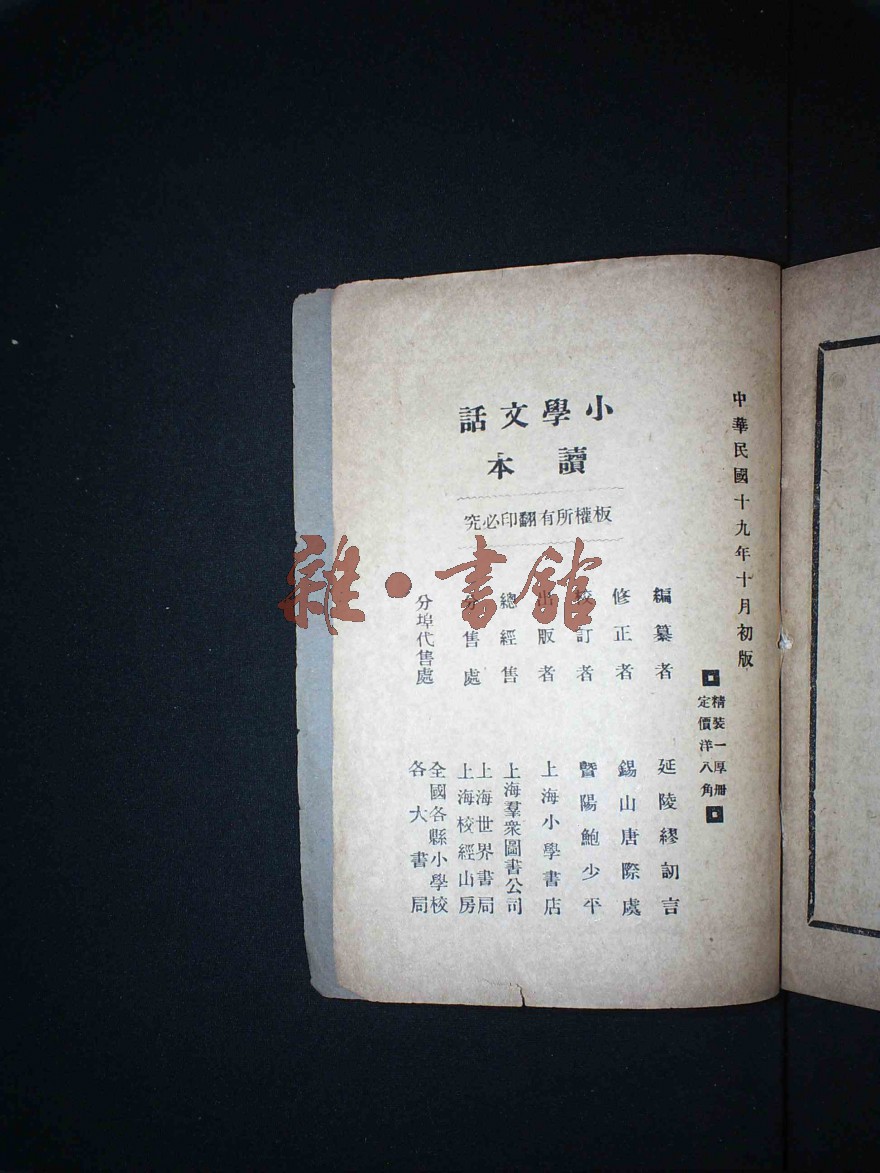 中華民國十九年十月初版
精裝一厚冊
定價洋八角
小學文話
讀本
板權所有翻印必究
編纂者 延陵繆訒言
修正者 錫山唐際虞
校訂者 暨陽鮑少平
出版者 上海小學書店
總經售 上海羣衆圖書公司
分售處 上海世界書局
上海校經山房
分埠代售處 全國各縣小學校
各大書局
雜·書館